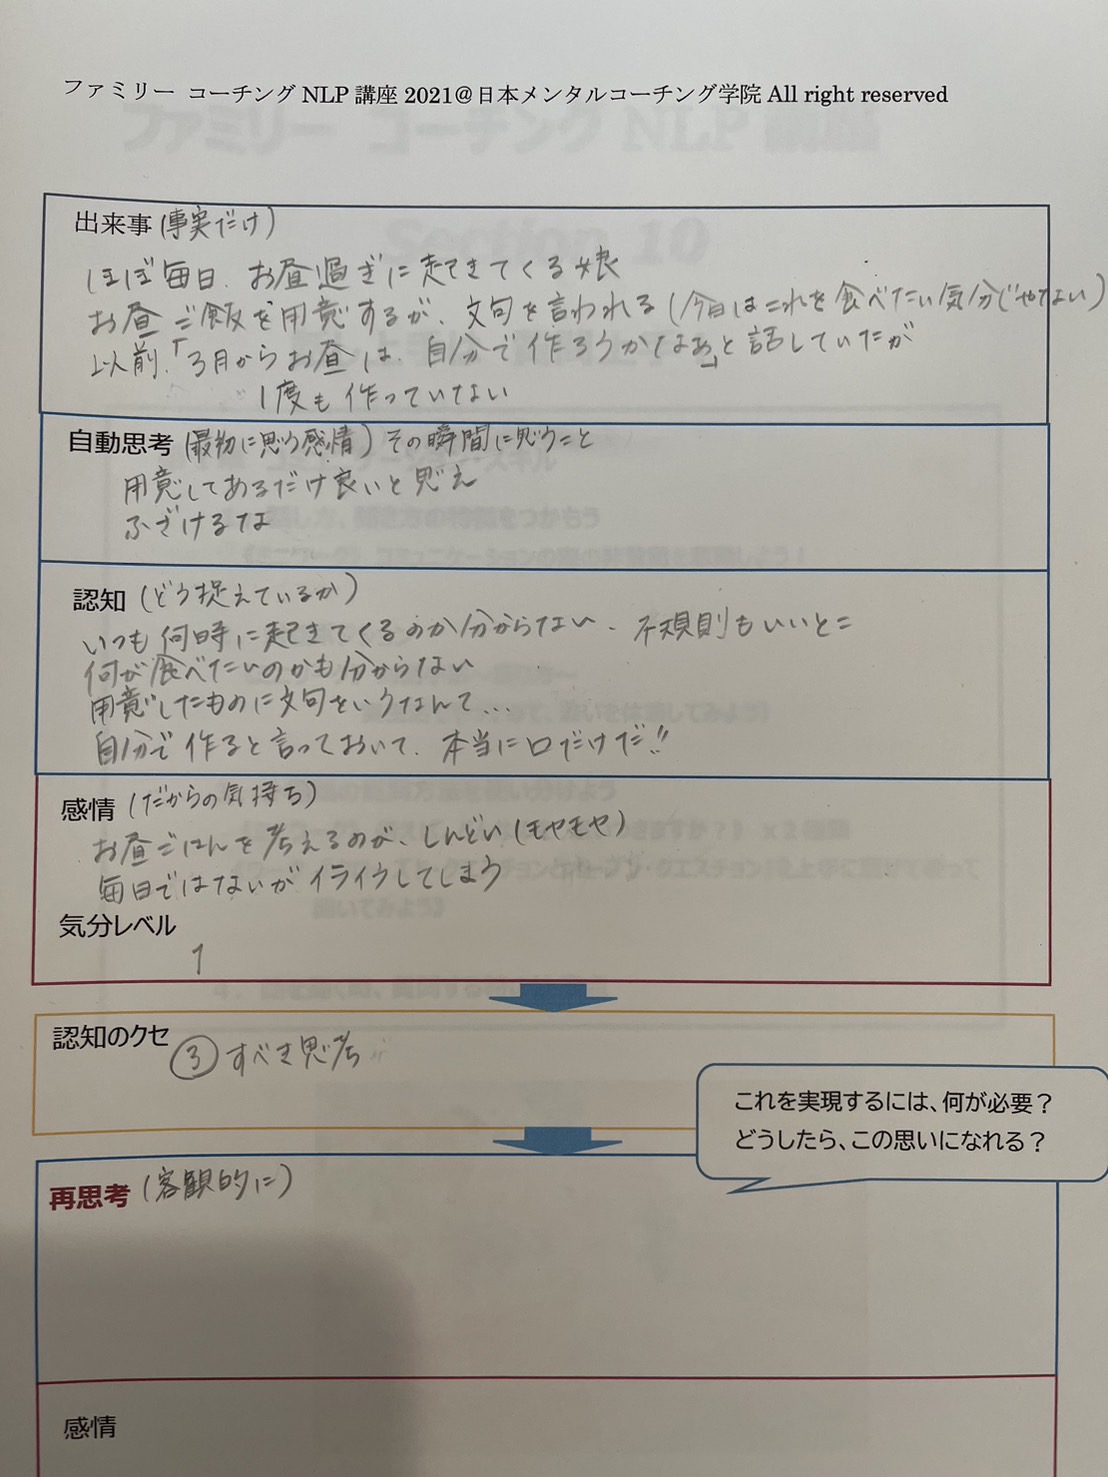 ファミリー コーチング NLP 講座 2021@日本メンタルコーチング学院 All right reserved
出来事 (事実だけ)
ほぼ毎日、お昼過ぎに起きてくる娘
お昼ご飯を用意するが、文句を言われる (今日はこれを食べたい気分じゃない)
以前、「3月からお昼は、自分で作ろうかなぁ」と話していたが
1度も作っていない
自動思考 (最初に思う感情) その瞬間に思うこと
用意してあるだけ良いと思え
ふざけるな
認知 (どう捉えているか)
いつも何時に起きてくるのか分からない、不規則もいいとこ
何が食べたいのかも分からない
用意したものに文句をいうなんて...
自分で作ると言っておいて、本当に口だけだ!!
感情 (だからの気持ち)
お昼ごはんを考えるのが、しんどい (モヤモヤ)
毎日ではないがイライラしてしまう
気分レベル
1
認知のクセ
③すべき思考
これを実現するには、何が必要?
どうしたら、この思いになれる?
再思考 (客観的に)
感情